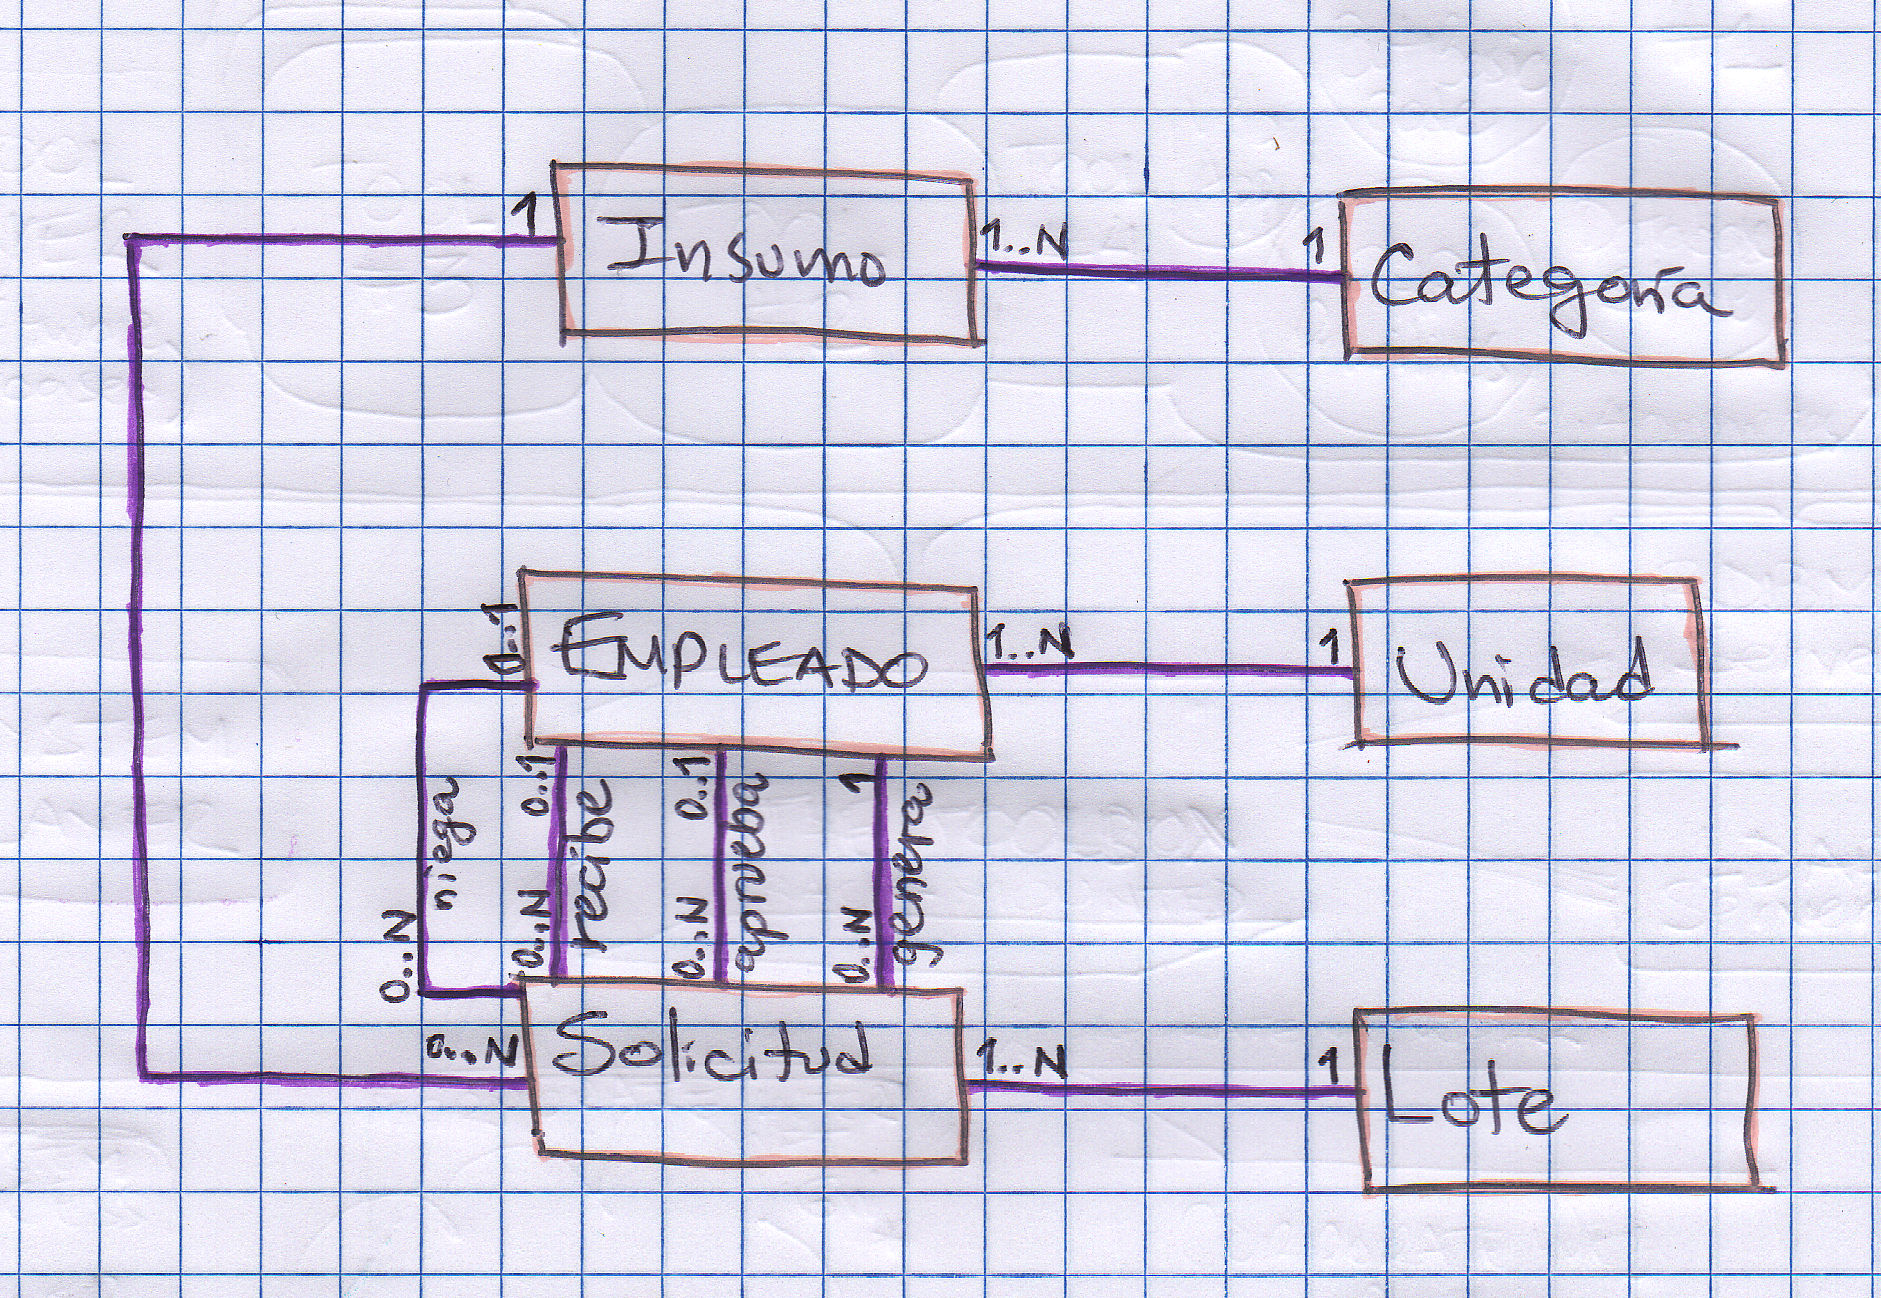 1 Insumo 1..N 1 Categoría
0..1 EMPLEADO 1..N 1 Unidad
niega
0..N
0..1 recibe 0..N
0..1 aprueba 0..N
1 genera 0..N
0..N Solicitud 1..N 1 Lote